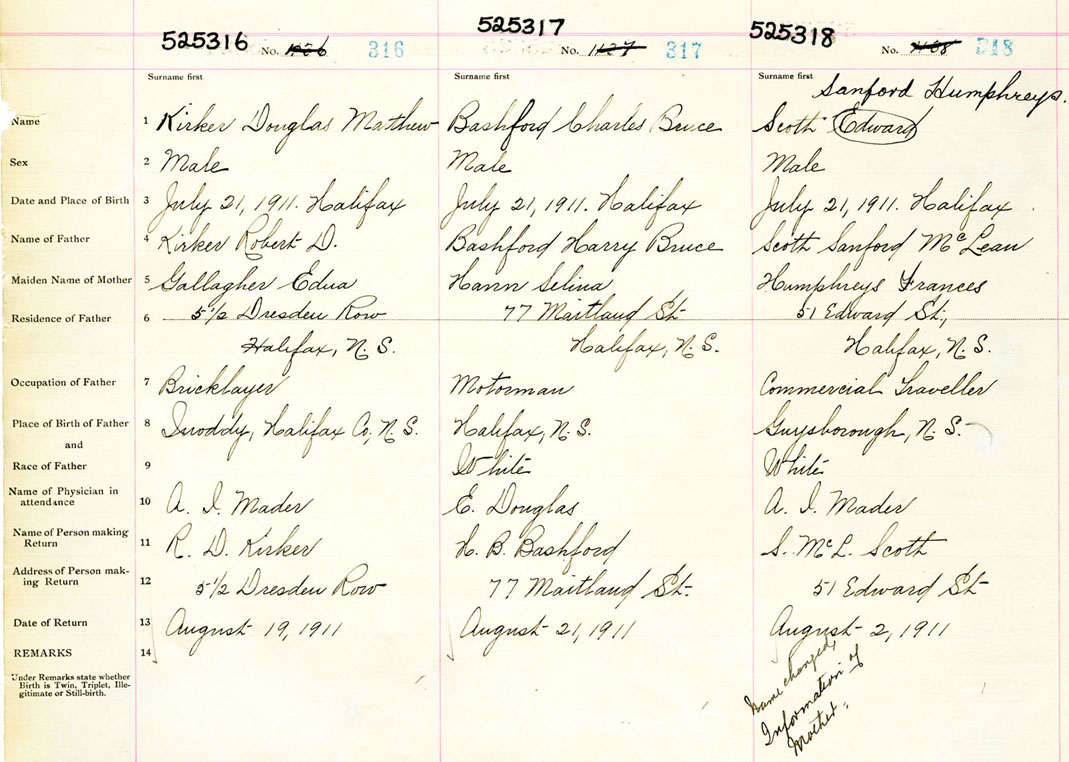 525316 No. 1126 316
525317 No. 1127 317
525318 No. 1128 318
Surname first Surname first Surname first Sanford Humphreys.
Name 1 Kirker Douglas Matthew Bashford Charles Bruce Scott Edward
Sex 2 Male Male Male
Date and Place of Birth 3 July 21, 1911. Halifax July 21, 1911. Halifax July 21, 1911. Halifax.
Name of Father 4 Kirker Robert D. Bashford Harry Bruce Scott Sanford McLean
Maiden Name of Mother 5 Gallagher Edna Hann Selina Humphreys Frances
Residence of Father 6 5 1/2 Dresden Row 77 Maitland St. 51 Edward St,
Halifax, N.S. Halifax, N.S. Halifax, N.S.
Occupation of Father 7 Bricklayer Motorman Commercial Traveller
Place of Birth of Father 8 Quoddy, Halifax Co, N.S. Halifax, N.S. Guysborough, N.S.
and
Race of Father 9 White White
Name of Physician in
attendance 10 A. I. Mader E. Douglas A. I. Mader
Name of Person making
Return 11 R. D. Kirker H. B. Bashford S. McL. Scott
Address of Person mak-
ing Return 12 5 1/2 Dresden Row 77 Maitland St. 51 Edward St
Date of Return 13 August 19, 1911 August 21, 1911 August 2, 1911
REMARKS 14
Under Remarks state whether
Birth is Twin, Triplet, Ille-
gitimate or Still-birth.
Name changed,
Information of
Mother.